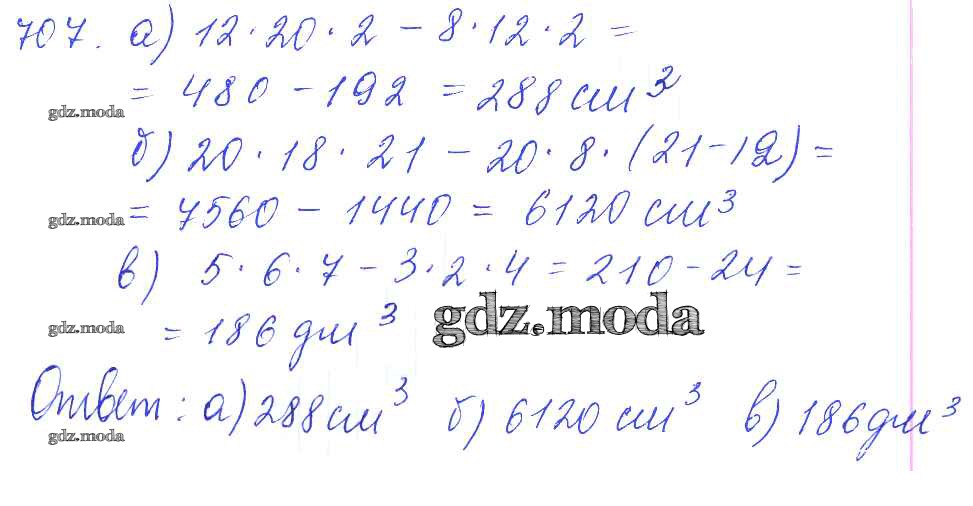 707. а) 12·20·2 - 8·12·2 =
= 480 - 192 = 288 см³
gdz.moda
б) 20·18·21 - 20·8·(21-12) =
= 7560 - 1440 = 6120 см³
gdz.moda
в) 5·6·7 - 3·2·4 = 210 - 24 =
= 186 дм³
gdz.moda
gdz.moda
Ответ: а) 288 см³ б) 6120 см³ в) 186 дм³
gdz.moda